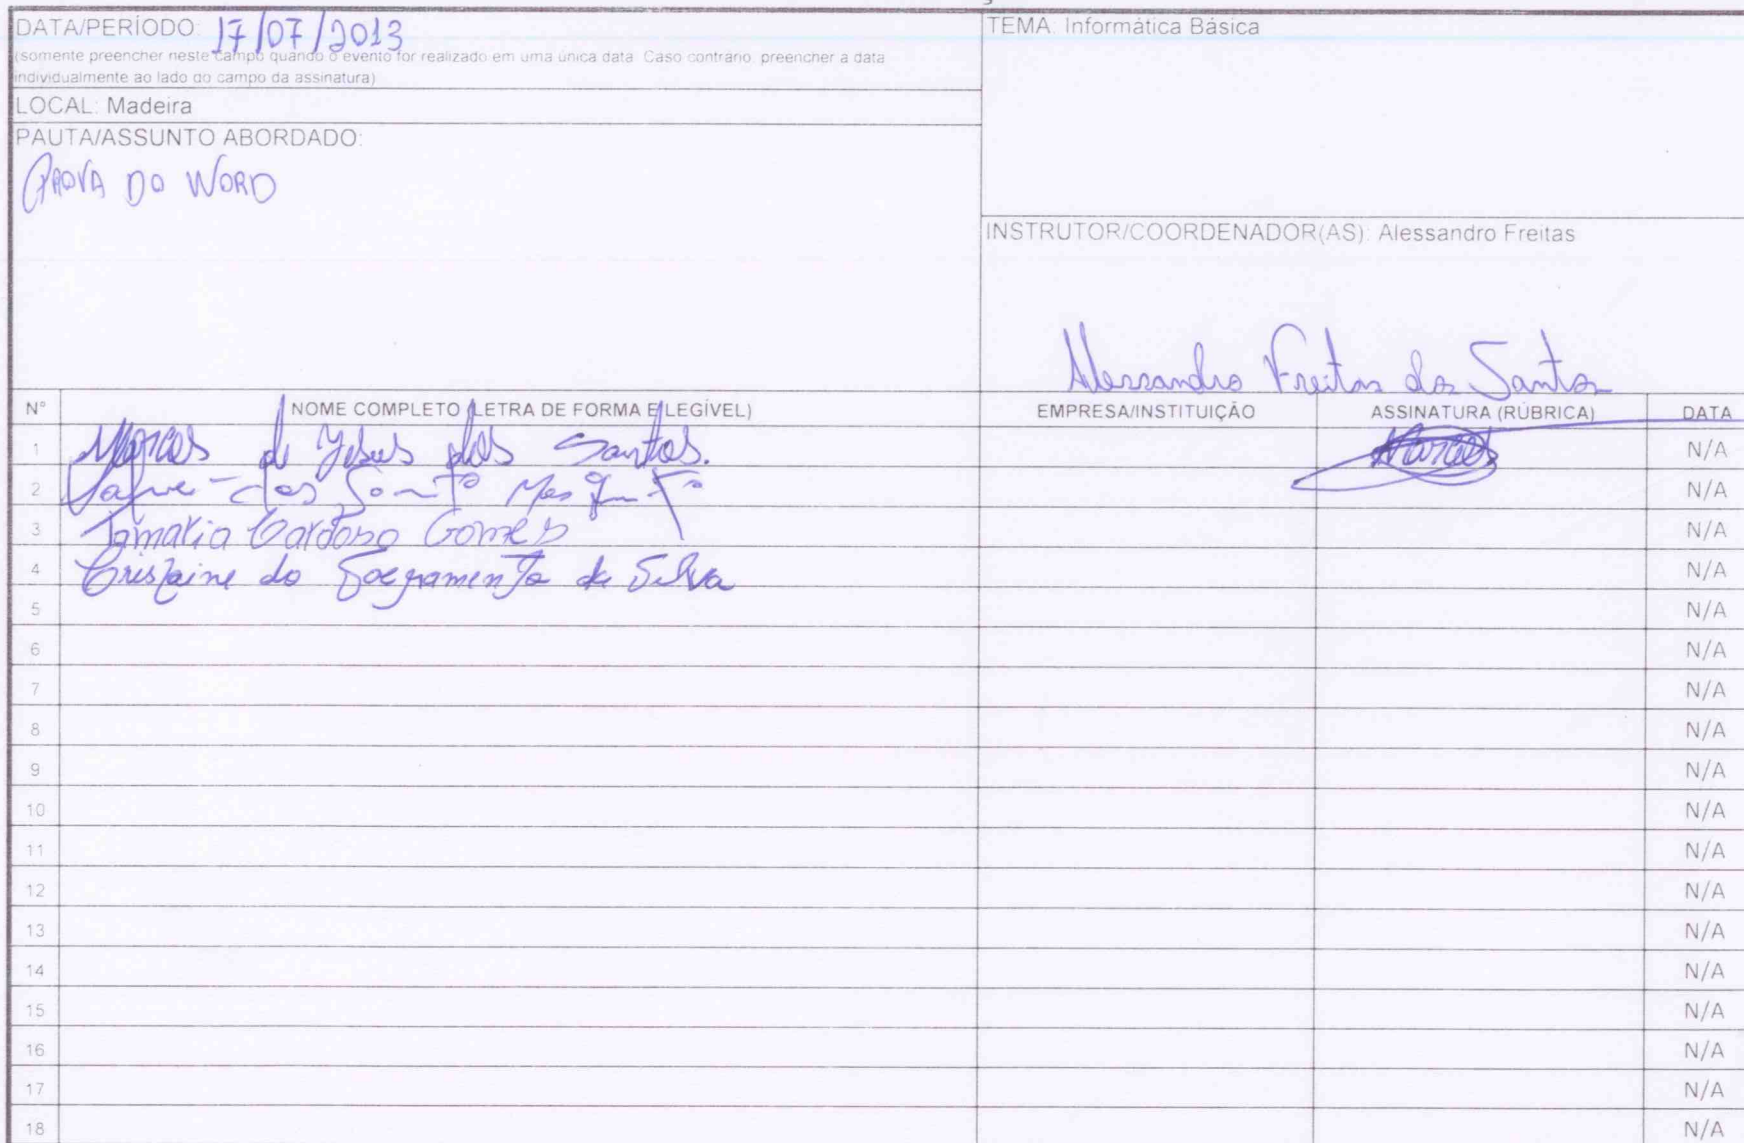 DATA/PERÍODO: 17/07/2013
(somente preencher neste campo quando o evento for realizado em uma única data. Caso contrário, preencher a data
individualmente ao lado do campo da assinatura)
TEMA: Informática Básica
LOCAL: Madeira
PAUTA/ASSUNTO ABORDADO:
PROVA DO WORD
INSTRUTOR/COORDENADOR(AS): Alessandro Freitas
Alessandro Freitas dos Santos
N° NOME COMPLETO (LETRA DE FORMA E LEGÍVEL) EMPRESA/INSTITUIÇÃO ASSINATURA (RÚBRICA) DATA
1 Marcos de Jesus dos Santos. Marcos N/A
2 dos N/A
3 Cardoso Gomes N/A
4 do da Silva N/A
5 N/A
6 N/A
7 N/A
8 N/A
9 N/A
10 N/A
11 N/A
12 N/A
13 N/A
14 N/A
15 N/A
16 N/A
17 N/A
18 N/A